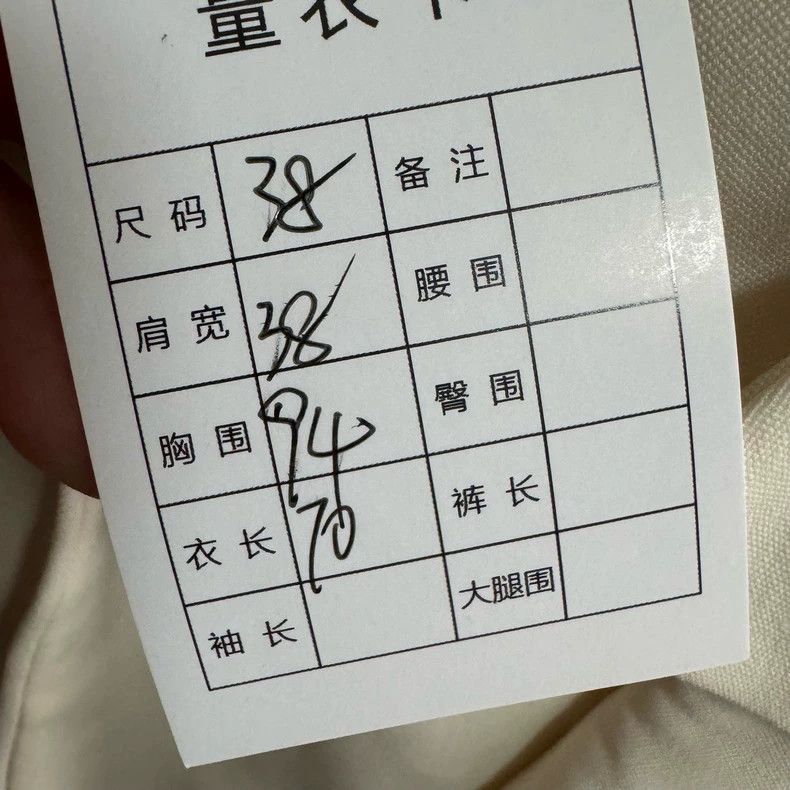 量衣卡
尺码 38 备注
肩宽 38 腰围
胸围 94 臀围
衣长 70 裤长
袖长 大腿围